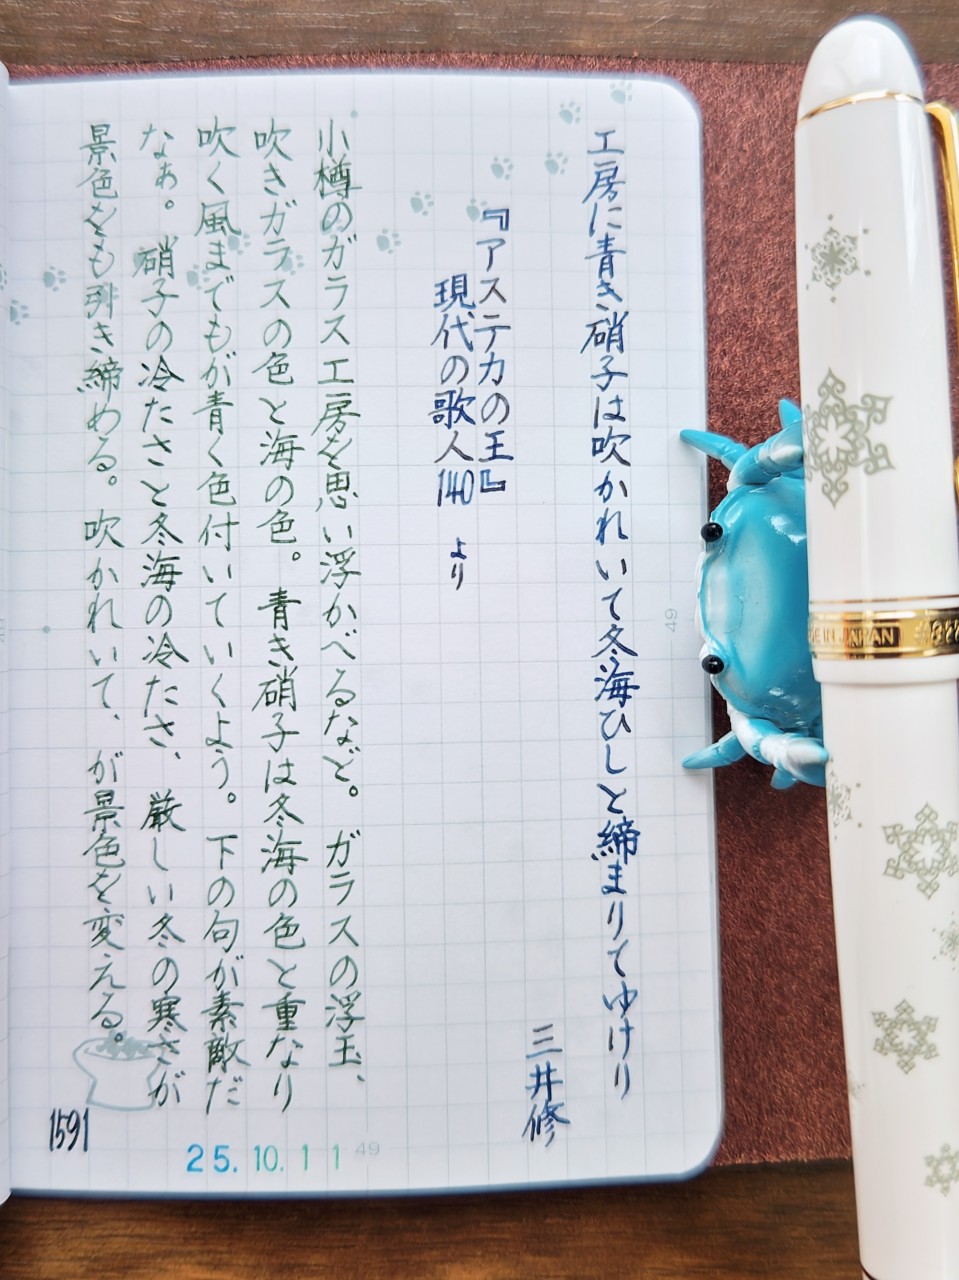 工房に青き硝子は吹かれいて冬海ひしと締まりてゆけり
三井修
『アステカの王』
現代の歌人140 より
小樽のガラス工房を思い浮かべるなど。ガラスの浮玉、
吹きガラスの色と海の色。青き硝子は冬海の色と重なり
吹く風までもが青く色付いていくよう。下の句が素敵だ
なぁ。硝子の冷たさと冬海の冷たさ、厳しい冬の寒さが
景色をも引き締める。吹かれいて、が景色を変える。
1591
25.10.11
49
49
MADE IN JAPAN